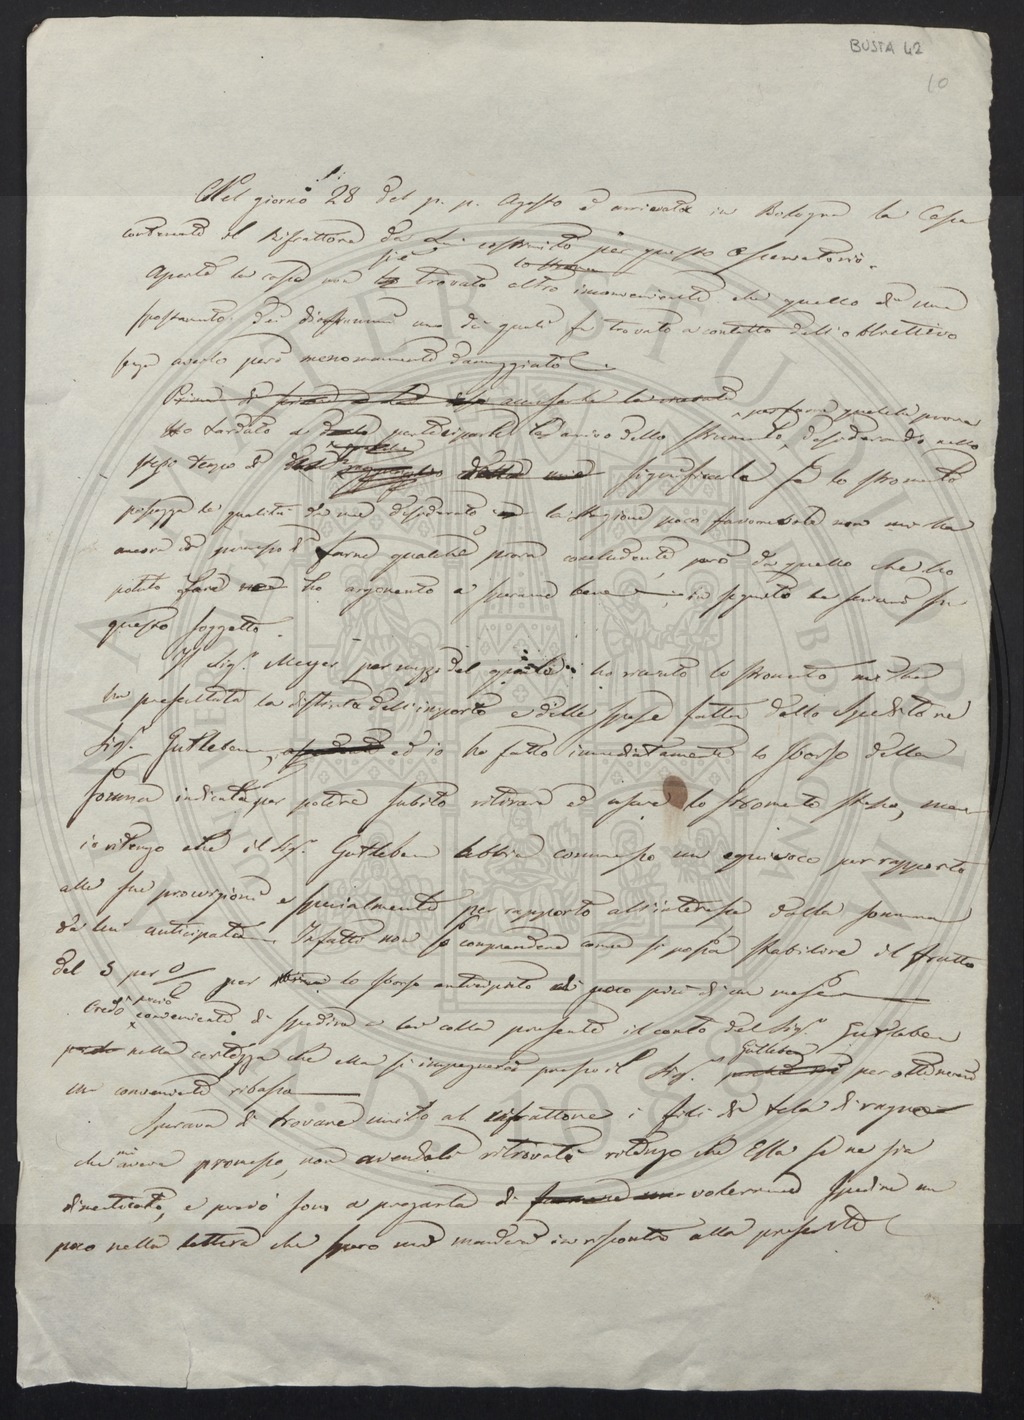 BUSTA 42
10
Nel giorno 28 del p. p. Agosto è arrivata in Bologna la Cassa
contenente il Rifrattore da Lui costruito per questo Osservatorio.
Aperta la cassa non si è trovato altro inconveniente che quello di uno
spostamento dei diaframmi uno dei quali fu trovato a contatto dell'obbiettivo
senza averlo però menomamente danneggiato.
Prima di
Ho tardato a participarle l'arrivo dello strumento per farne qualche prova desiderando nello
stesso tempo di significarle se lo stromento
possegga le qualità da me desiderate la stagione poco favorevole non mi ha
ancora permesso di farne qualche prova concludente, però da quello che ho
potuto fare ho argomento a sperarne bene in seguito le scriverò su
questo soggetto.
Il Sig.r Meyer per mezzo del quale ho ricevuto lo stromento mi ha
presentata la distinta dell'importo e delle spese fatta dallo Speditore
Sig.r Gutleben, ed io ho fatto immediatamente lo sborso della
somma indicata per poter subito ritirare ed usare lo stromento stesso, ma
io ritengo che il Sig.r Gutleben abbia commesso un equivoco per rapporto
alle sue provvigioni e specialmente per rapporto all'interesse della somma
da lui anticipata. Infatti non so comprendere come si possa stabilire il frutto
del 5 per % per lo sborso anticipato di poco più di un mese
Credo perciò conveniente di spedire a lei colla presente il conto del Sig.r Gutleben
nella certezza che ella si impegnerà presso il Sig.r Gutleben per ottenere
un conveniente ribasso
Sperava di trovare unito al rifrattore i fili di tela di ragno
che mi aveva promesso, non avendoli ritrovati ritengo che Ella se ne sia
dimenticato, e perciò sono a pregarla di volermene spedire un
poco nella lettera che spero mi manderà in riscontro alla presente